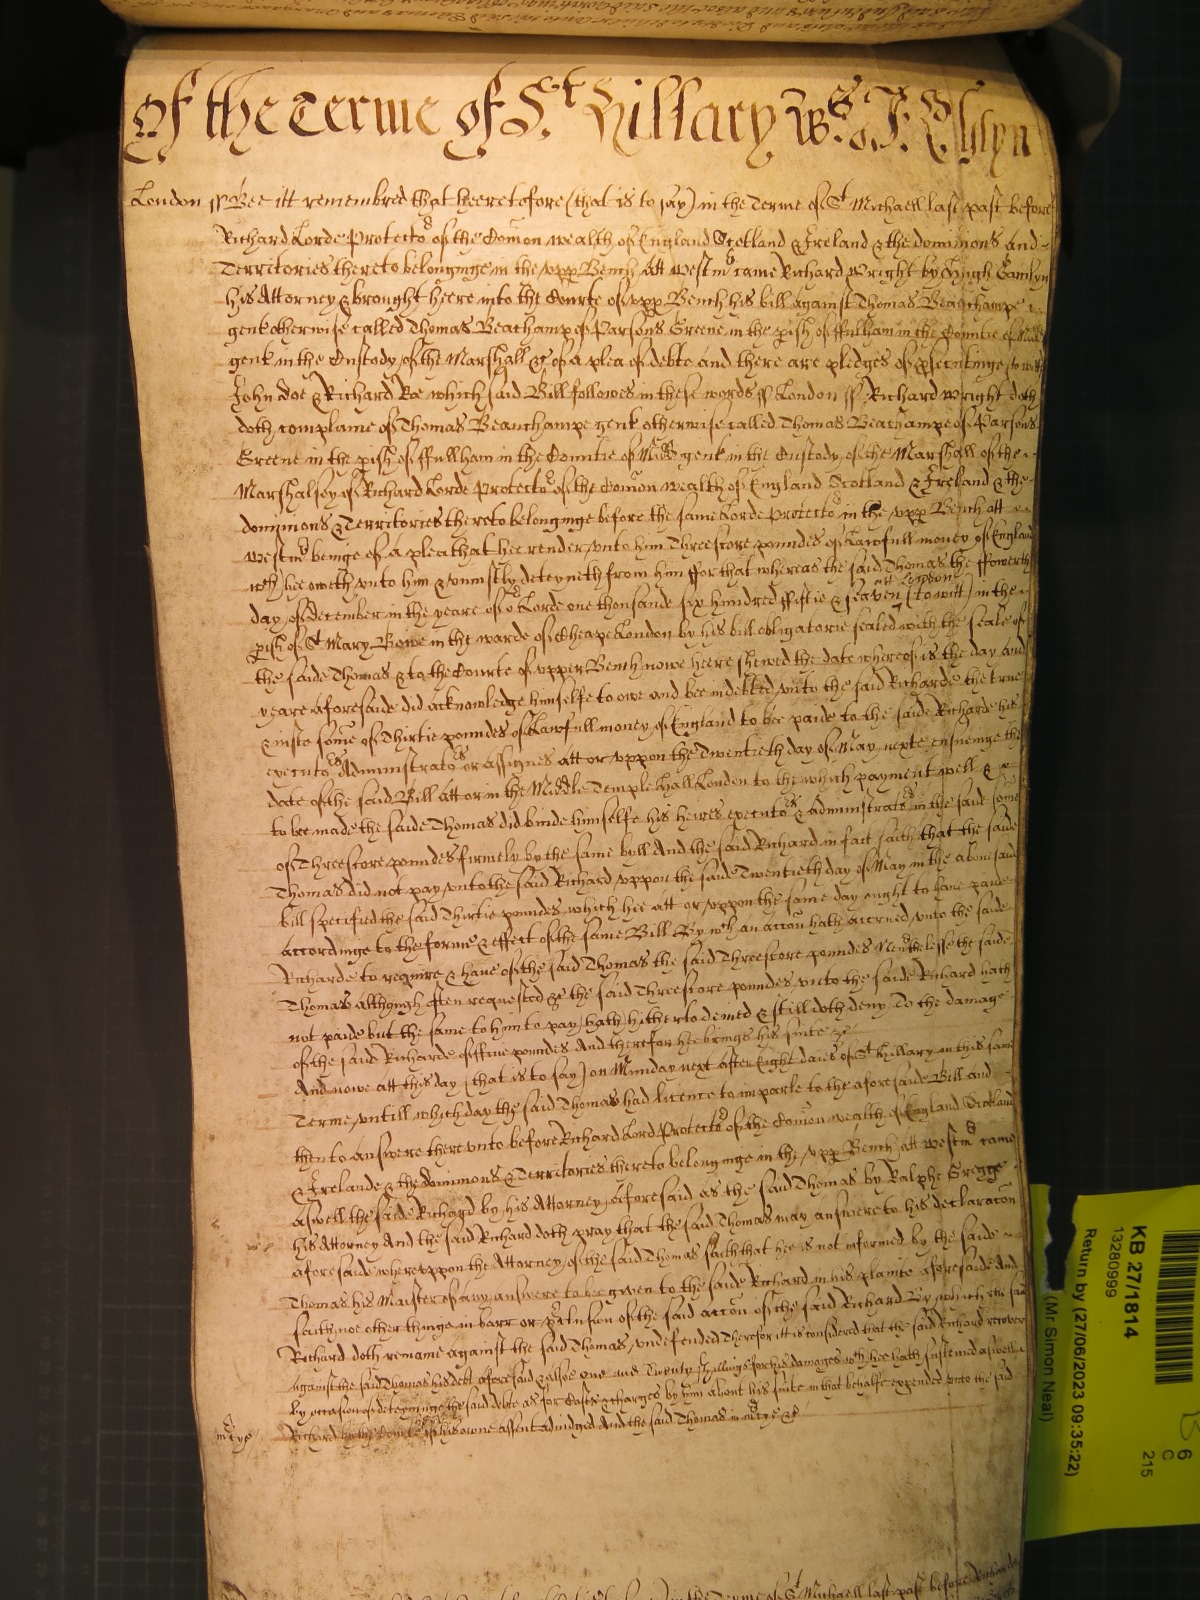 Of the Terme of St. Hillary
London ss Bee itt remembred that heeretofore (that is to say) in the Terme of St Michaell last past before
Richard Lorde Protector of the Comon wealth of England Scotland & Ireland & the dominions and
Territories thereto belonginge in the upp Bench att Westmr came Richard Wright by Hugh
his Attorney & brought heere into the Courte of upp Bench his bill against Thomas Beauchampe
gent otherwise called Thomas Beachamp of Parsons Greene in the pish of ffulham in the Countie of Midd
gent in the Custody of the Marshall &c of a plea of debte and there are pledges of psecutinge to witt
John doe & Richard Roe which said Bill followes in these words ss London ss Richard Wright doth
doth complaine of Thomas Beauchampe gent otherwise called Thomas Beachampe of Parsons
Greene in the pish of ffullham in the Countie of Midd gent in the Custody of the Marshall of the
Marshalsey of Richard Lorde Protector of the Comon wealth of England Scotland & Ireland & the
dominions & Territories thereto belonginge before the same Lorde Protector in the upp Bench att
Westmr beinge of a plea that hee render unto him Threescore poundes of Lawfull money of England
wch hee oweth unto him & uniustly deteyneth from him ffor that whereas the said Thomas the ffowerth
day of december in the yeare of or Lorde one thousande six hundred fiftie & seaven att London (to witt) in the
pish of St Mary Bowe in the warde of Cheape London by his bill obligatorie sealed with the seale of
the saide Thomas & to the Courte of upper Bench nowe heere shewed the date whereof is the day and
yeare aforesaide did acknowledge himselfe to owe and bee indebted unto the said Richarde the true
& iuste some of Thirtie poundes of Lawfull money of England to bee paide to the saide Richarde his
executors Administrators or assignes att or uppon the Twentieth day of May nexte ensueinge the
date of the said Bill att or in the Middle Temple Hall London to the which payment well &
to bee made the saide Thomas did binde himselfe his heires executors & administrators in the said some
of Threescore poundes firmely by the same byll And the said Richard in fact saith that the saide
Thomas did not pay unto the said Richard uppon the saide Twentieth day of May in the abovesaid
bill specified the said Thirtie poundes which hee att or uppon the same day ought to have paide
accordinge to the forme & effect of the same Bill By wch an accon hath accrued unto the saide
Richarde to require & have of the said Thomas the said Threescore poundes Neverthelesse the saide
Thomas although often requested &c the said Threescore poundes unto the saide Richard hath
not paide but the same to him to pay hath hitherto denied & still doth deny To the damage
of the said Richarde of ffive poundes And therefore hee brings his suite &c
And nowe att this day (that is to say) on Munday next after Eight daies of St Hillary in this same
Terme untill which day the said Thomas had licence to imparle to the aforesaide Bill and
then to answere thereunto before Richard Lord Protector of the Comon wealth of England Scotland
& Irelande & the dominions & Territories thereto belonginge in the upp Bench att Westmr came
aswell the saide Richard by his Attorney aforesaid as the said Thomas by Ralphe Gregge
his Attorney And the said Richard doth pray that the said Thomas may answere to his declaracon
aforesaide whereuppon the Attorney of the said Thomas saith that hee is not informed by the saide
Thomas his Maister of any answere to bee given to the saide Richard in his plainte aforesaide And
saith noe other thinge in barr or of the said accon of the said Richard By which the said
Richard doth remaine against the said Thomas undefended Therefore itt is considered that the said Richard recover
against the said Thomas his debt aforesaid & allsoe one and Twenty shillings for his damages wch hee hath susteined aswell
by occasion of deteyninge the said debte as for Costs & charges by him about his suite in that behalfe expended unto the said
Richard by the Courte of his owne assent adiudged And the said Thomas in mercye &c
mercye
in the Terme of St Michaell last past before Richard
KB 27/1814
13280999
Return by (27/06/2023 09:35:22)
(Mr Simon Neal)
6
C
215